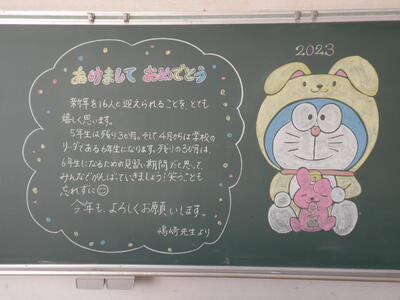 あけまして おめでとう
新年を16人と迎えられることを、とても
嬉しく思います。
5年生は残り3ヶ月。そして4月からは学校の
リーダーである6年生になります。残りの3か月は、
6年生になるための見習い期間だと思って、
みんなでがんばっていきましょう！笑うことも
忘れずに☺
今年も、よろしくお願いします。
嶋崎先生より
2023